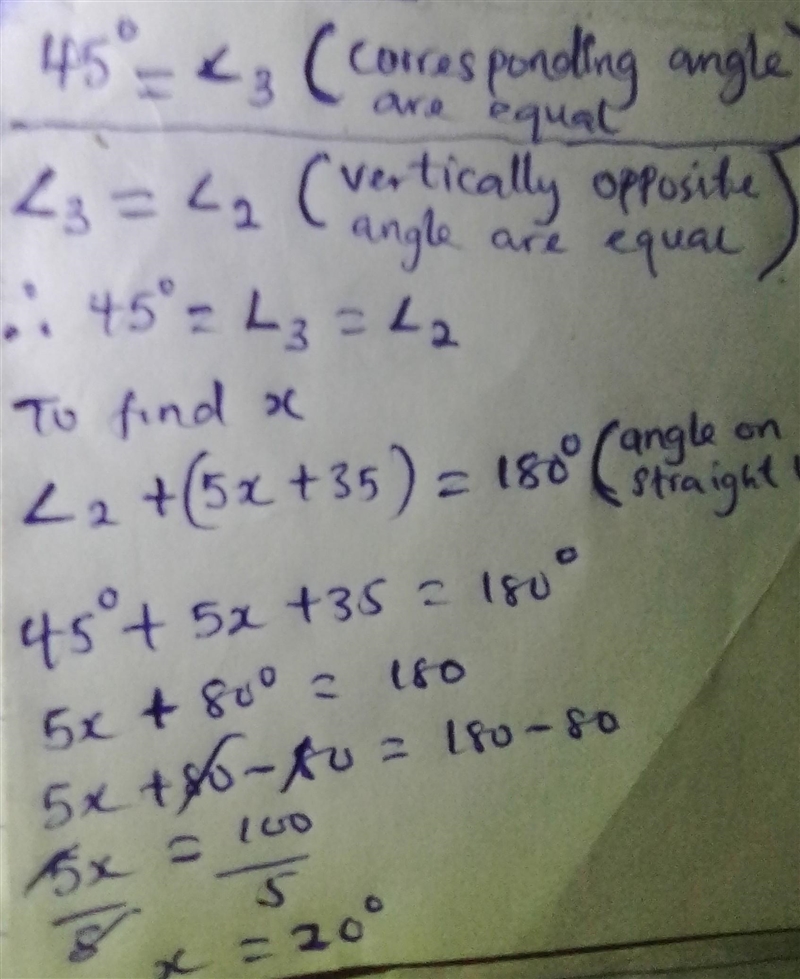 45° = ∠3 (corresponding angle
are equal
∠3 = ∠2 (vertically opposite
angle are equal)
∴ 45° = ∠3 = ∠2
To find x
∠2 + (5x + 35) = 180° (angle on
straight
45° + 5x + 35 = 180°
5x + 80° = 180
5x + 80 - 80 = 180 - 80
5x/5 = 100/5
x = 20°